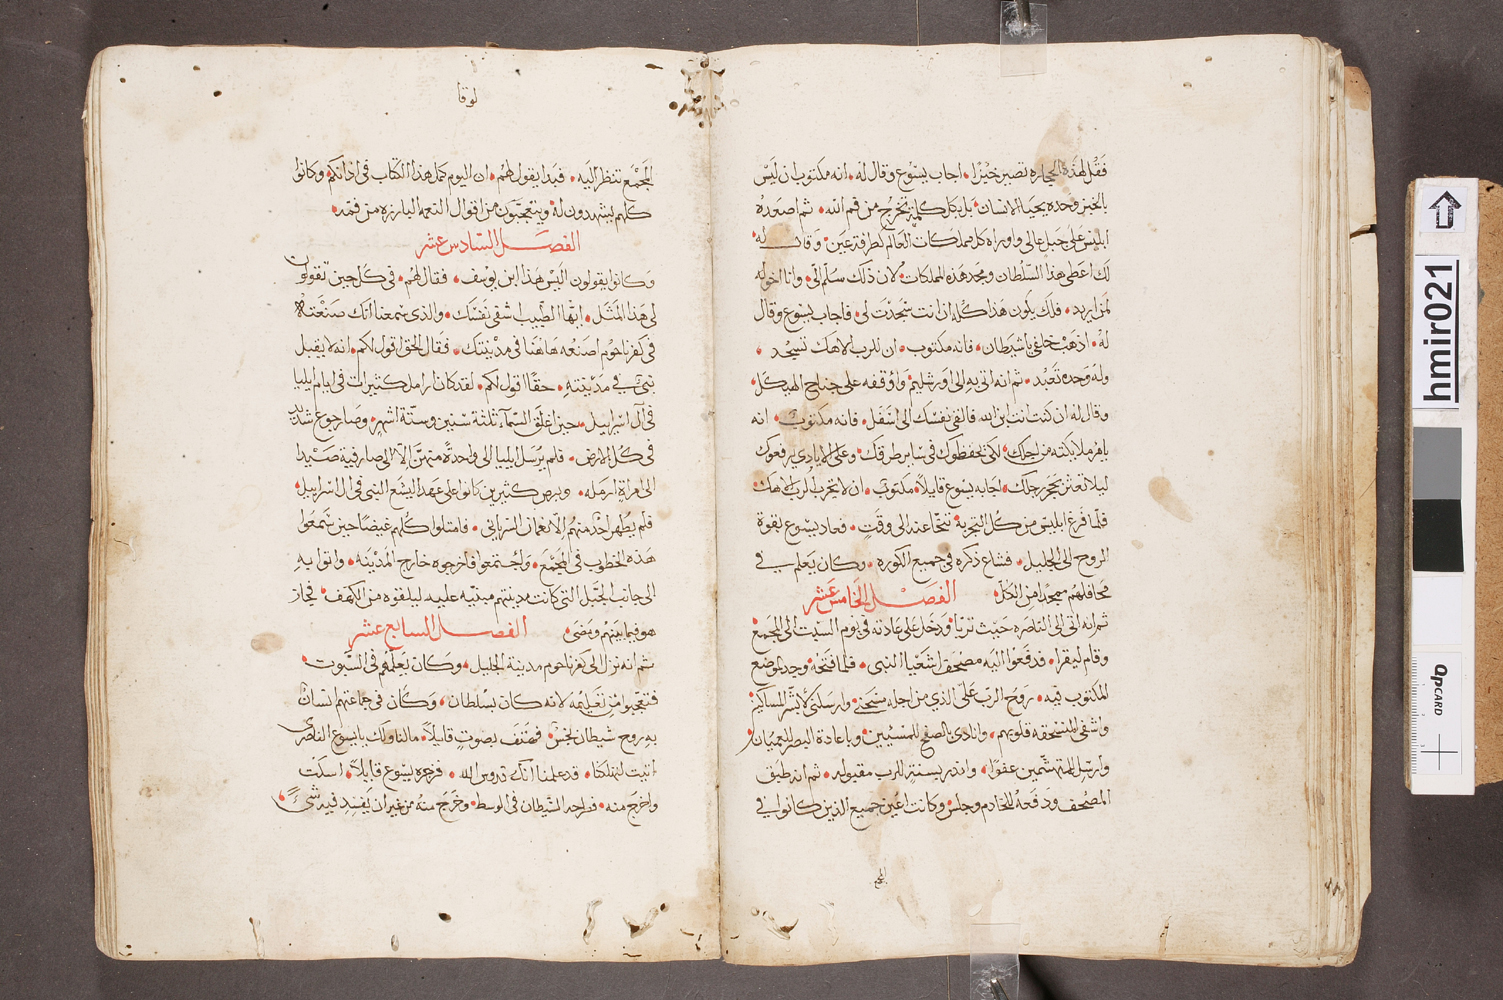 فقل لهذه الحجاره تصير خبزا. اجاب يسوع وقال له. انه مكتوب ان ليس
بالخبز وحده يحيا الانسان. بل بكل كلمة تخرج من فم الله. ثم اصعده
ابليس على جبل عالي واوراه كل مملكات العالم في طرفة عين. وقال له.
لك اعطى هذا السلطان ومجد هذه المملكات. لان ذلك سلم الي. وانا اخوله
لمن اريد. فلك يكون هذا كله ان انت سجدت لى. فاجاب يسوع وقال
له. اذهب خلفي يا شيطان. فانه مكتوب. ان للرب الاهك تسجد.
وله وحده تعبد. ثم انه اتى به الى اورشليم واوقفه على جناح الهيكل.
وقال له ان كنت انت ابن الله فالقي نفسك الى اسفل. فانه مكتوب. انه
يامر ملايكته من اجلك. لكي يحفظوك في ساير طرقك. وعلى الايادي يرفعوك
ليلا تعثر بحجر رجلك. اجابه يسوع قايلا. مكتوب. ان لا تجرب الرب الاهك.
فلما فرغ ابليس من كل التجربة تنحا عنه الى وقت. فعاد يسوع بقوة
الروح الى الجليل. فشاع ذكره في جميع الكوره. وكان يعلم في
محافلهم ممجدا من الكل. الفصل الخامس عشر
ثم انه اتى الى الناصره حيث تربا. ودخل على عادته في يوم السبت الى المجمع
وقام ليقرا. فدفعوا اليه مصحف اشعيا النبي. فلما فتحه وجد الموضع
المكتوب فيه. روح الرب علي الذي من اجله مسحني. وارسلني لابشر المساكين
واشفى المنسحقه قلوبهم. وانادي بالصفح للمسبيين. وباعادة البصر للعميان.
وارسل المتهشمين عفوا. وانذر بسنة للرب مقبوله. ثم انه طبق
المصحف ودفعه للخادم وجلس. وكانت اعين جميع الذين كانوا في
المجم
لوقا
المجمع تنظر اليه. فبدا يقول لهم. ان اليوم كمل هذا الكتاب في اذانكم. وكانوا
كلهم يشهدون له ويتعجبون من اقوال النعمه البارزه من فمه.
الفصل السادس عشر
وكانوا يقولون اليس هذا ابن يوسف. فقال لهم. في كل حين تقولون
لى هذا المثل. ايها الطبيب اشفى نفسك. والذى سمعنا انك صنعته
في كفرناحوم اصنعه هاهنا في مدينتك. فقال الحق اقول لكم. انه لا يقبل
نبي في مدينته. حقا اقول لكم. لقد كان ارامل كثيرات في ايام ايليا
في آل اسراييل. حين اغلق السماء ثلثة سنين وستة اشهر. وصار جوع شديد
في كل الارض. فلم يرسل ايليا الى واحدة منهن الا الى صارفية صيدا
الى امراة ارمله. وبرص كثيرين كانوا على عهد اليشع النبي في ال اسراييل.
فلم يطهر احد منهم الا نعمان السرياني. فامتلوا كلهم غيضا حين سمعوا
هذه الخطوب في المجمع. واجتمعوا فاخرجوه خارج المدينه. واتوا به
الى جانب الجبل التي كانت مدينتهم مبنيه عليه ليلقوه من الكهف. فجاز
هو فيما بينهم ومضى. الفصل السابع عشر
ثم انه نزل الى كفرناحوم مدينة الجليل. وكان يعلمهم في السبوت.
فتعجبوا من تعليمه لانه كان بسلطان. وكان في جماعتهم انسان
به روح شيطان نجس. فهتف بصوت قايلا. مالنا ولك يا يسوع الناصرى
اتيت لتهلكنا. قد علمنا انك قدوس الله. فزجره يسوع قايلا. اسكت
واخرج منه. فطرحه الشيطان في الوسط. وخرج منه من غير ان يفسد فيه شي